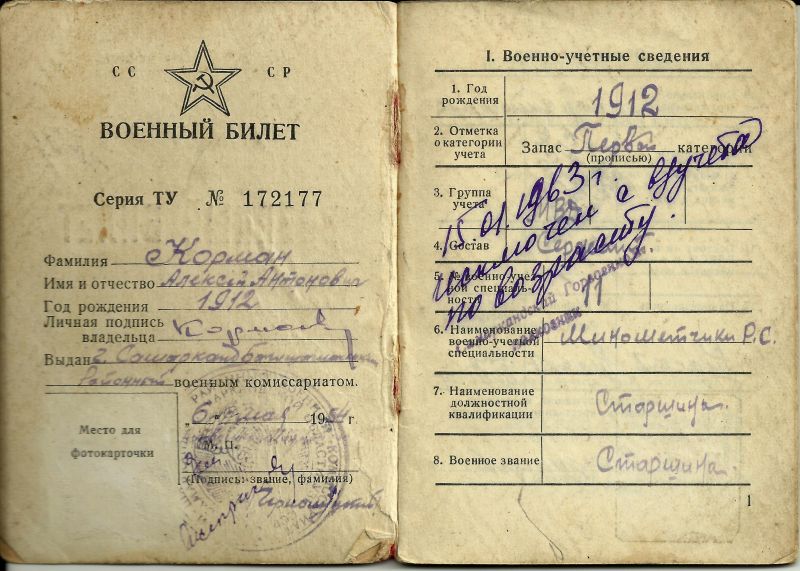 СС СР
ВОЕННЫЙ БИЛЕТ
Серия ТУ № 172177
Фамилия Корман
Имя и отчество Алексей Антонович
Год рождения 1912
Личная подпись
владельца
Выдан
Районный военным комиссариатом.
„6“ мая 1954 г
М. П.
Место для
фотокарточки
(Подпись, звание, фамилия)
I. Военно-учетные сведения
1. Год
рождения 1912
2. Отметка
о категории
учета Запас Первой категории
(прописью)
3. Группа
учета
15.01.1963 г.
исключен с в/учета
по возрасту.
4. Состав
5. № военно-учет-
ной специаль-
ности
6. Наименование
военно-учетной
специальности Минометчики Р.С.
7. Наименование
должностной
квалификации Старшина
8. Военное звание Старшина
1